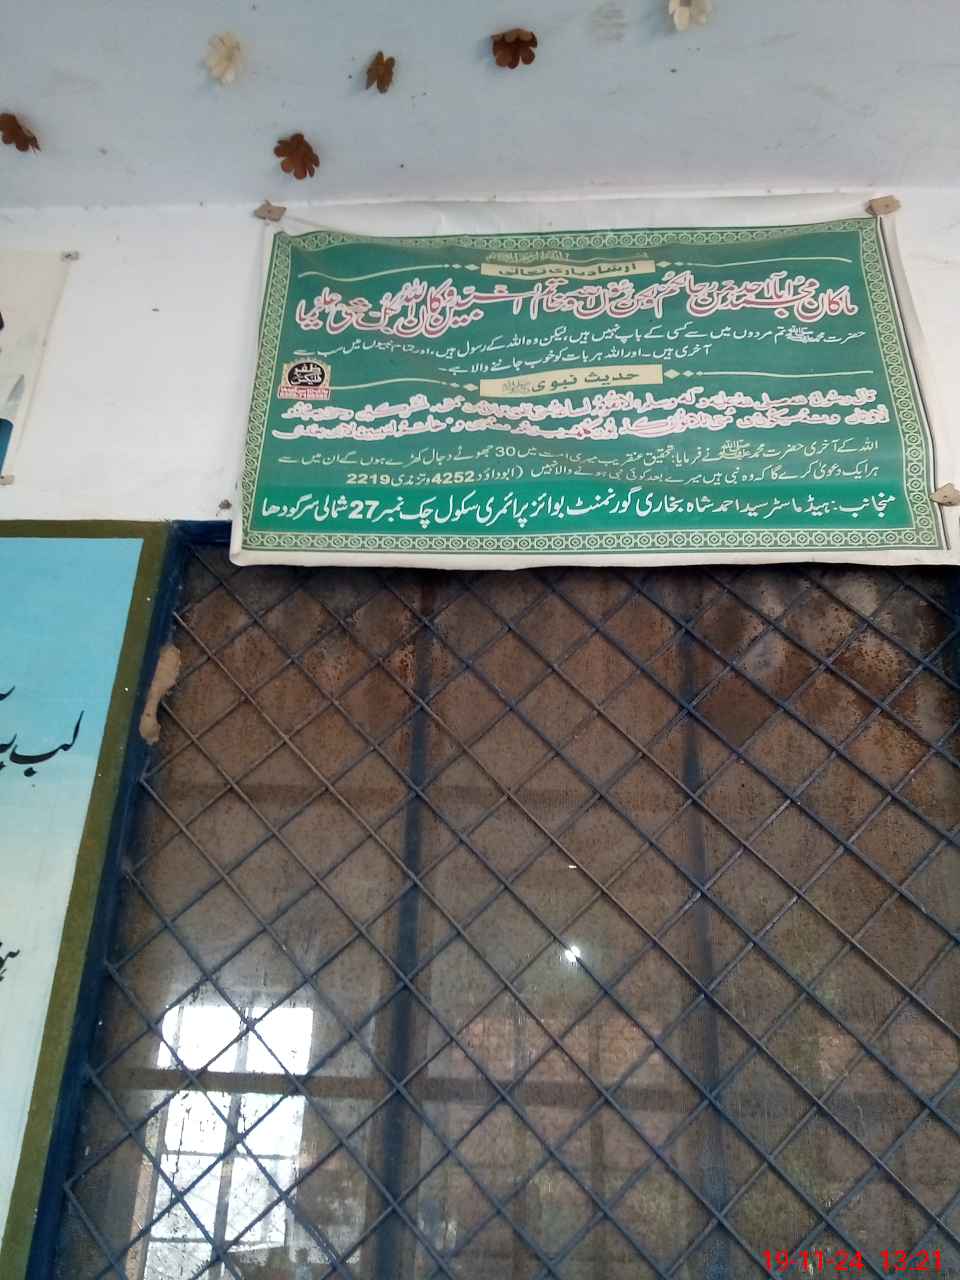 ارشاد باری تعالیٰ
ما كان محمد ابا احد من رجالكم ولكن رسول الله وخاتم النبيين وكان الله بكل شيء عليما
حضرت محمد ﷺ تم مردوں میں سے کسی کے باپ نہیں ہیں، لیکن وہ اللہ کے رسول ہیں، اور تمام نبیوں میں سب سے
آخری ہیں۔ اور اللہ ہر بات کو خوب جاننے والا ہے۔
ظفر
فلیکس
حدیث نبوی ﷺ
اللہ کے آخری حضرت محمد ﷺ نے فرمایا: تحقیق عنقریب میری امت میں 30 جھوٹے دجال کھڑے ہوں گے ان میں سے
ہر ایک دعویٰ کرے گا کہ وہ نبی ہیں میرے بعد کوئی نبی ہونے والا نہیں (ابوداؤد 4252 و ترمذی 2219
منجانب: ہیڈ ماسٹر سید احمد شاہ بخاری گورنمنٹ بوائز پرائمری سکول چک نمبر 27 شمالی سرگودھا
لب پہ
19-11-24 13:21